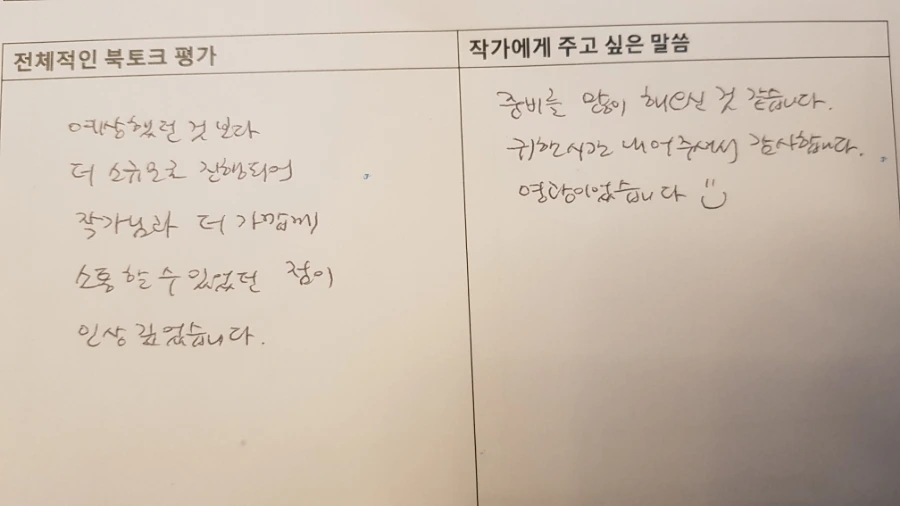 전체적인 북토크 평가
예상했던 것 보다
더 소규모로 진행되어
작가님과 더 가깝게
소통할 수 있었던 점이
인상 깊었습니다.
작가에게 주고 싶은 말씀
준비를 많이 해오신 것 같습니다.
귀한시간 내어주셔서 감사합니다.
영광이었습니다